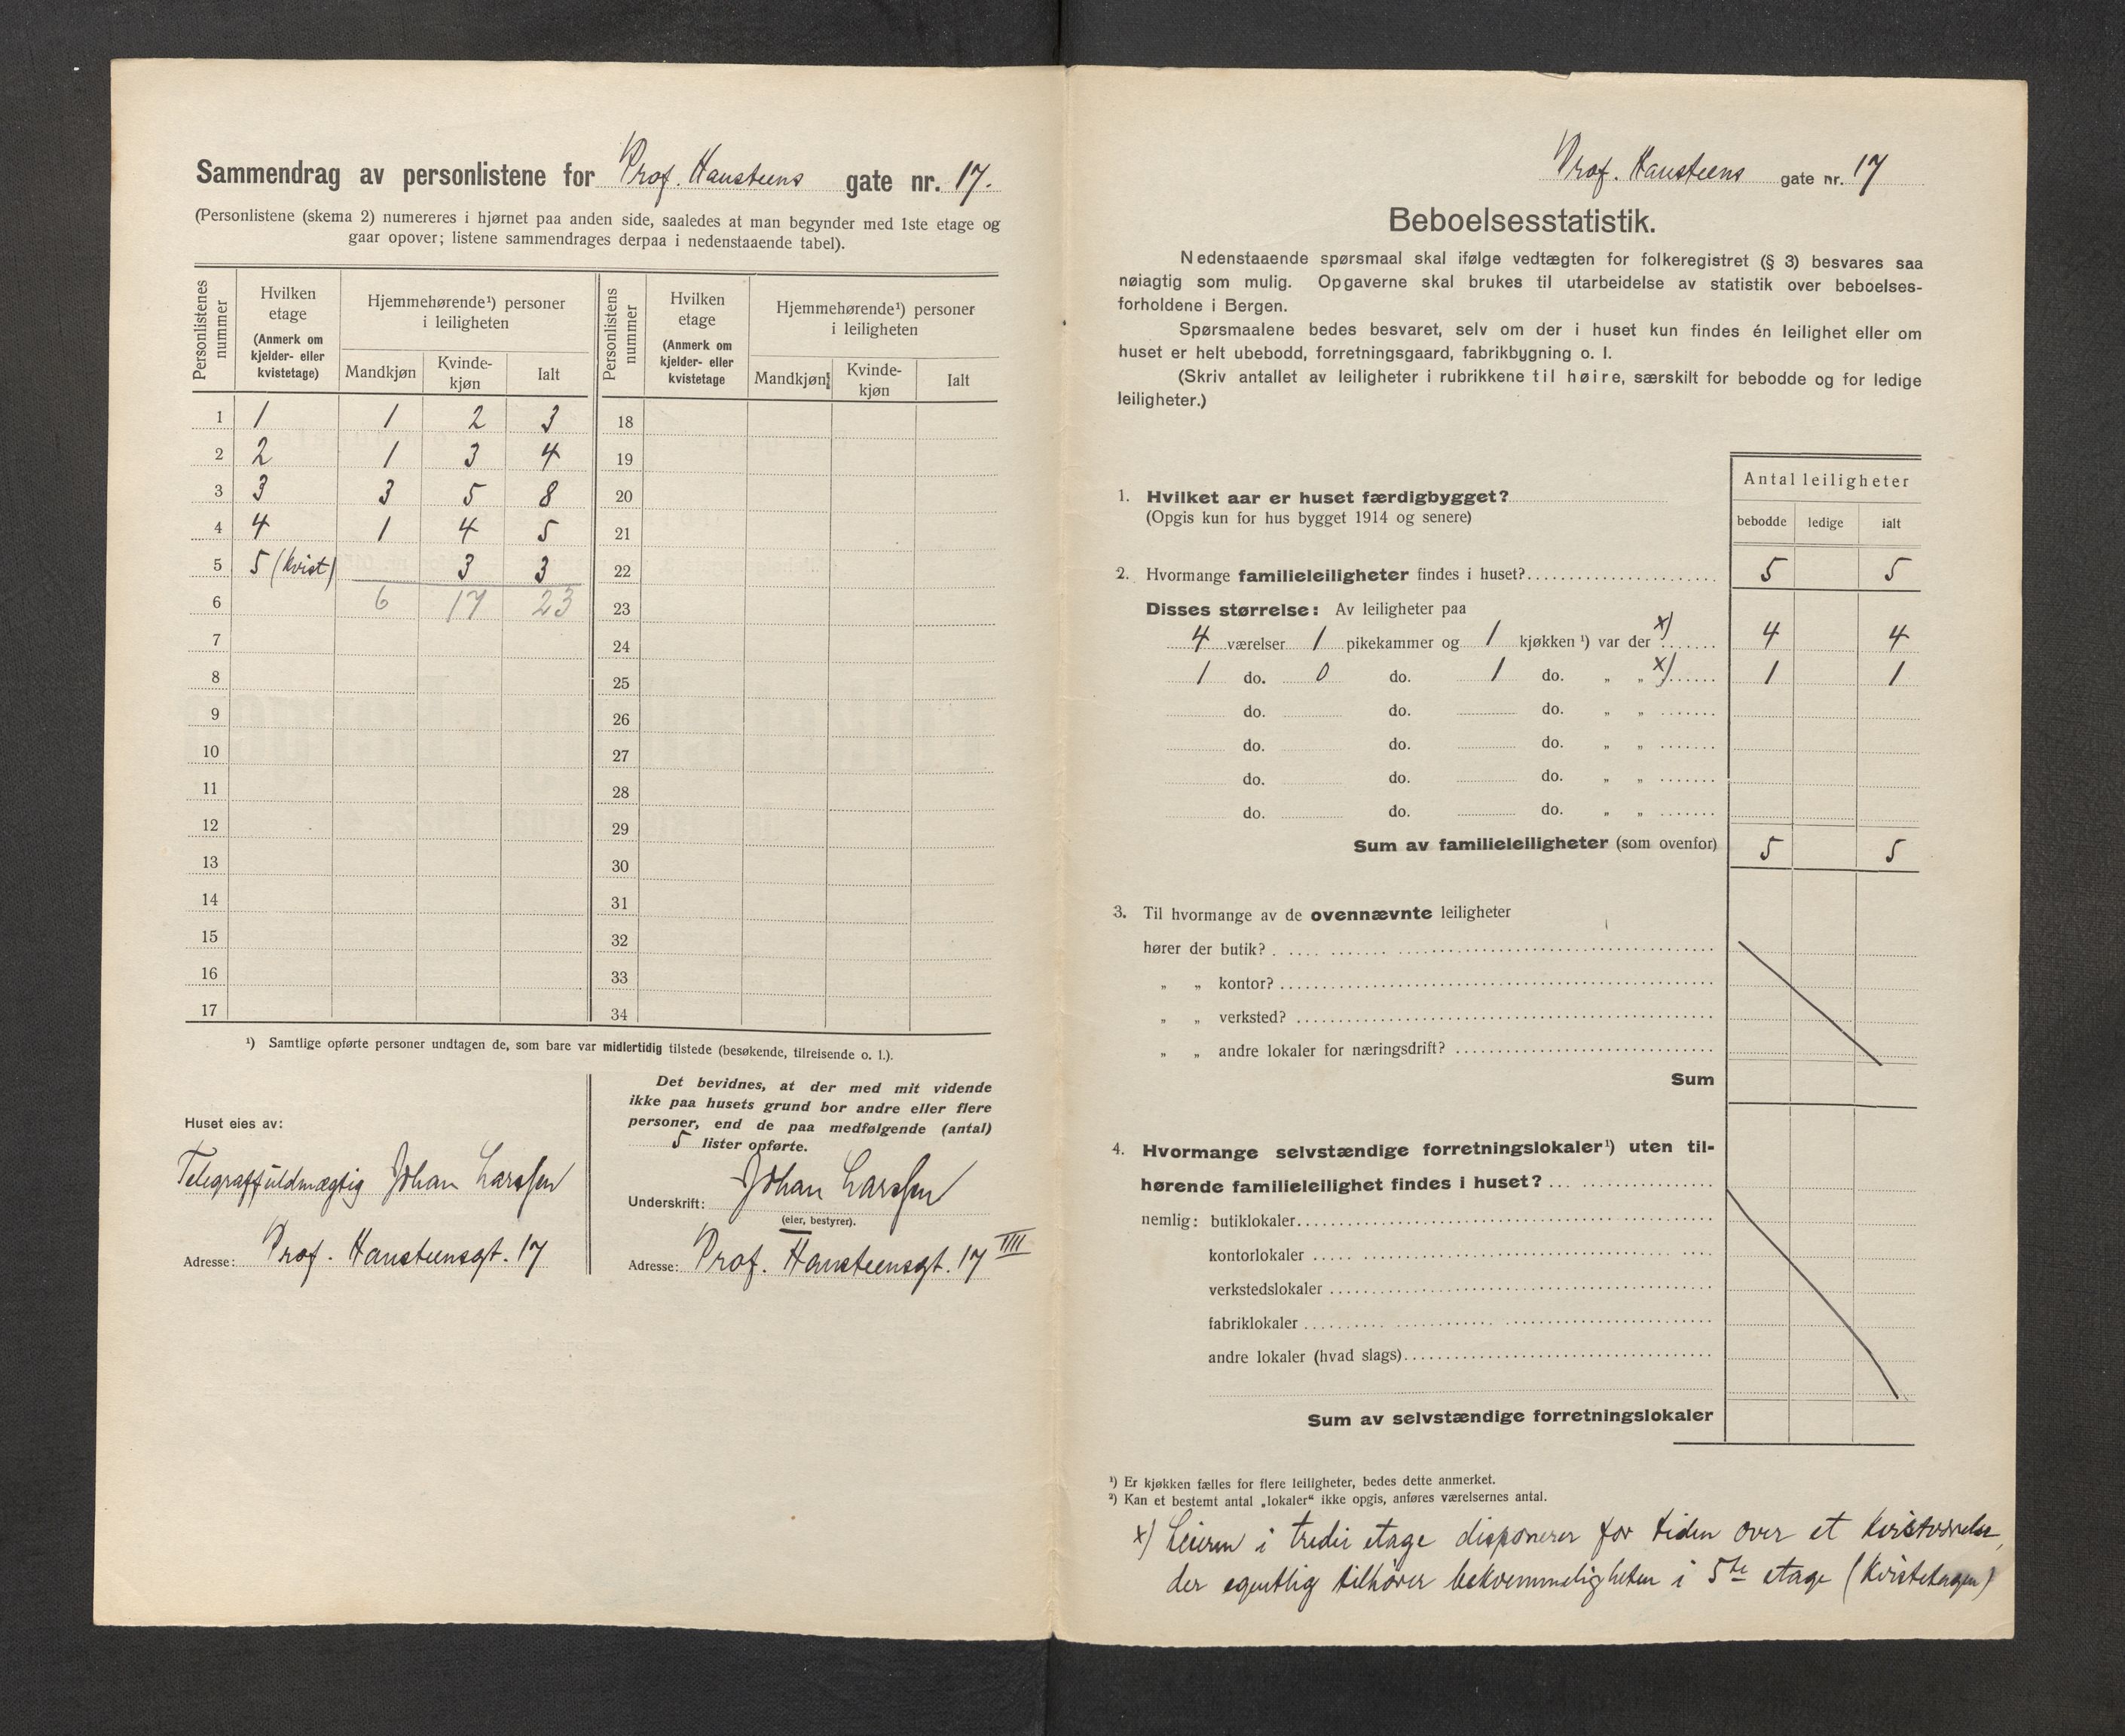 Sammendrag av personlistene for Prof. Hansteens gate nr. 17.
(Personlistene (skema 2) numereres i hjørnet paa anden side, saaledes at man begynder med 1ste etage og
gaar opover; listene sammendrages derpaa i nedenstaaende tabel).
Personlistenes nummer | Hvilken etage (Anmerk om kjelder- eller kvistetage) | Hjemmehørende¹) personer i leiligheten | Mandkjøn | Kvinde-kjøn | Ialt
Personlistens nummer | Hvilken etage (Anmerk om kjelder- eller kvistetage | Hjemmehørende¹) personer i leiligheten | Mandkjøn | Kvinde-kjøn | Ialt
1 1 1 2 3 18
2 2 1 3 4 19
3 3 3 5 8 20
4 4 1 4 5 21
5 5 (Kvist) 3 3 22
6 6 17 23 23
7 24
8 25
9 26
10 27
11 28
12 29
13 30
14 31
15 32
16 33
17 34
¹) Samtlige opførte personer undtagen de, som bare var midlertidig tilstede (besøkende, tilreisende o. l.).
Huset eies av:
Telegraffuldmægtig Johan Larssen
Adresse: Prof. Hansteensgt. 17
Det bevidnes, at der med mit vidende
ikke paa husets grund bor andre eller flere
personer, end de paa medfølgende (antal)
5 lister opførte.
Underskrift: Johan Larssen
(eier, bestyrer).
Adresse: Prof. Hansteensgt. 17 IIII
Prof. Hansteens gate nr. 17
Beboelsesstatistik.
Nedenstaaende spørsmaal skal ifølge vedtægten for folkeregistret (§ 3) besvares saa
nøiagtig som mulig. Opgaverne skal brukes til utarbeidelse av statistik over beboelses-
forholdene i Bergen.
Spørsmaalene bedes besvaret, selv om der i huset kun findes én leilighet eller om
huset er helt ubebodd, forretningsgaard, fabrikbygning o. l.
(Skriv antallet av leiligheter i rubrikkene til høire, særskilt for bebodde og for ledige
leiligheter.)
Antal leiligheter
bebodde ledige ialt
1. Hvilket aar er huset færdigbygget?
(Opgis kun for hus bygget 1914 og senere)
2. Hvormange familieleiligheter findes i huset? 5 5
Disses størrelse: Av leiligheter paa
4 værelser 1 pikekammer og 1 kjøkken ¹) var der x) 4 4
1 do. 0 do. 1 do. „ „ x) 1 1
do. do. do. „ „
do. do. do. „ „
do. do. do. „ „
do. do. do. „ „
Sum av familieleiligheter (som ovenfor) 5 5
3. Til hvormange av de ovennævnte leiligheter
hører der butik?
„ „ kontor?
„ „ verksted?
„ „ andre lokaler for næringsdrift?
Sum
4. Hvormange selvstændige forretningslokaler¹) uten til-
hørende familieleilighet findes i huset?
nemlig: butiklokaler
kontorlokaler
verkstedslokaler
fabriklokaler
andre lokaler (hvad slags)
Sum av selvstændige forretningslokaler
¹) Er kjøkken fælles for flere leiligheter, bedes dette anmerket.
²) Kan et bestemt antal „lokaler“ ikke opgis, anføres værelsernes antal.
x) Leieren i tredie etage disponerer for tiden over et kvistværelse,
der egentlig tilhører bekvemmeligheten i 5te etage (Kvistetagen)